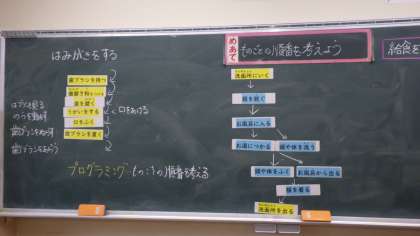 はみがきをする
歯ブラシを持つ
歯磨き粉をつける
歯を磨く
うがいをする
口をふく
歯ブラシを置く
口をあける
歯ブラシをぬらす
歯ブラシをあらう
プログラミング…ものごとの順番を考える
めあて
ものごとの順番を考えよう
洗面所にいく
服を脱ぐ
お風呂に入る
お湯につかる
頭や体を洗う
頭や体をふく
お風呂から出る
服を着る
洗面所を出る
給食を